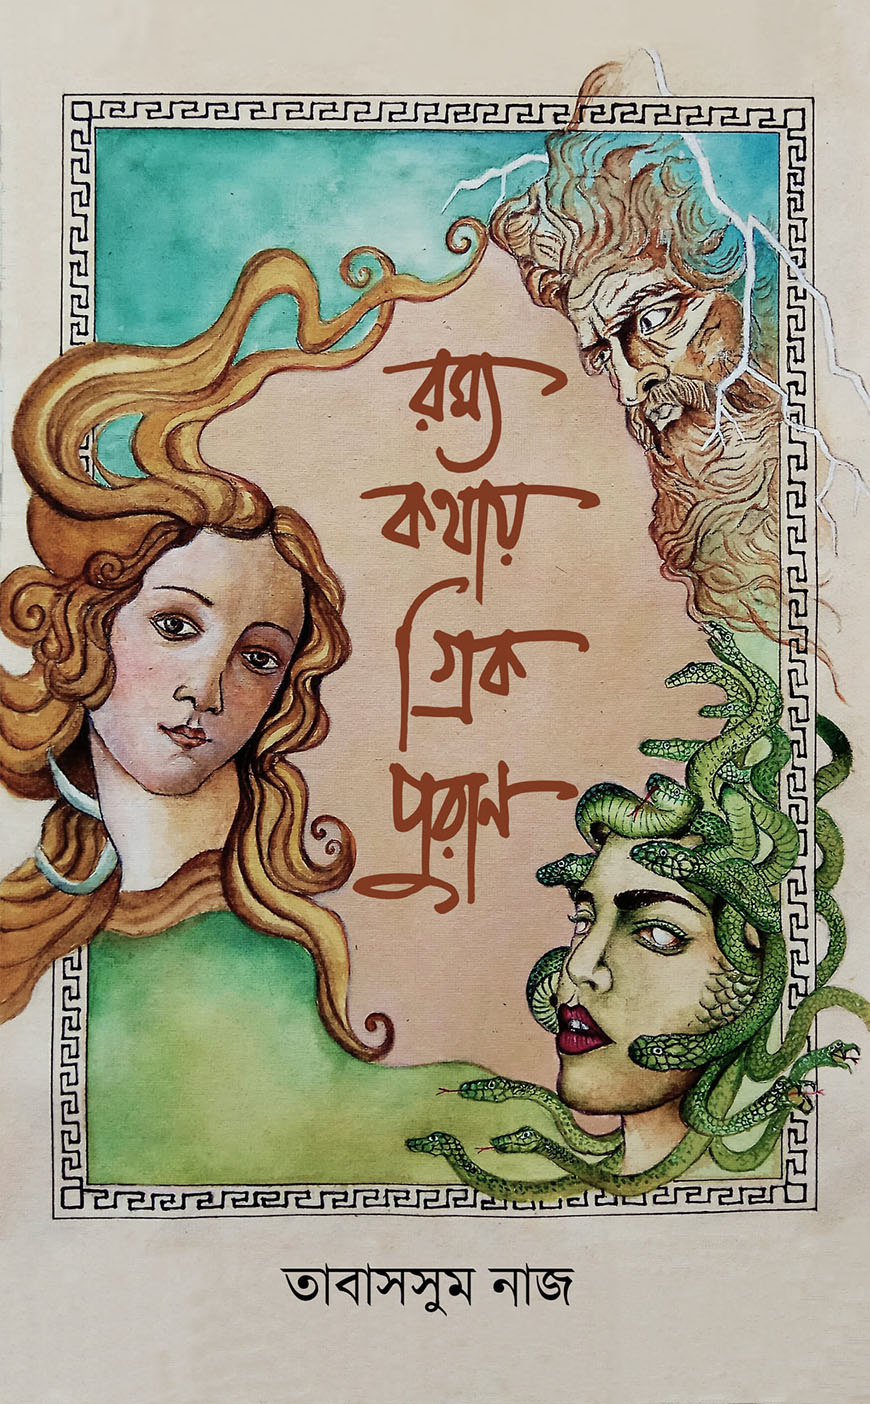 রম্য
কথায়
গ্রিক
পুরাণ
তাবাসসুম নাজ